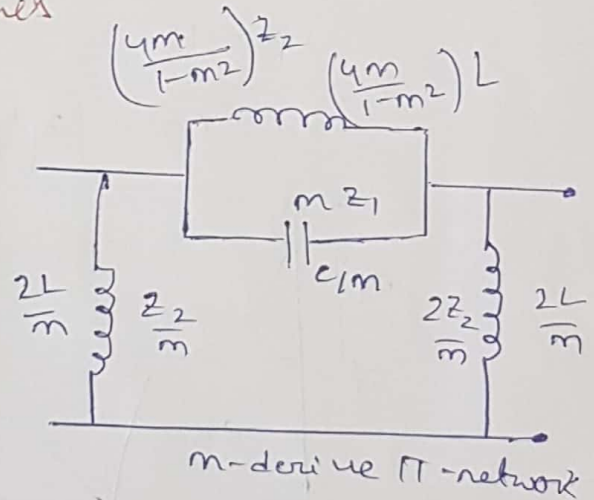 (4m/1-m²)Z₂
(4m/1-m²)L
mZ₁
C/m
2L/m
Z₂/m
2Z₂/m
2L/m
m-derive π-network